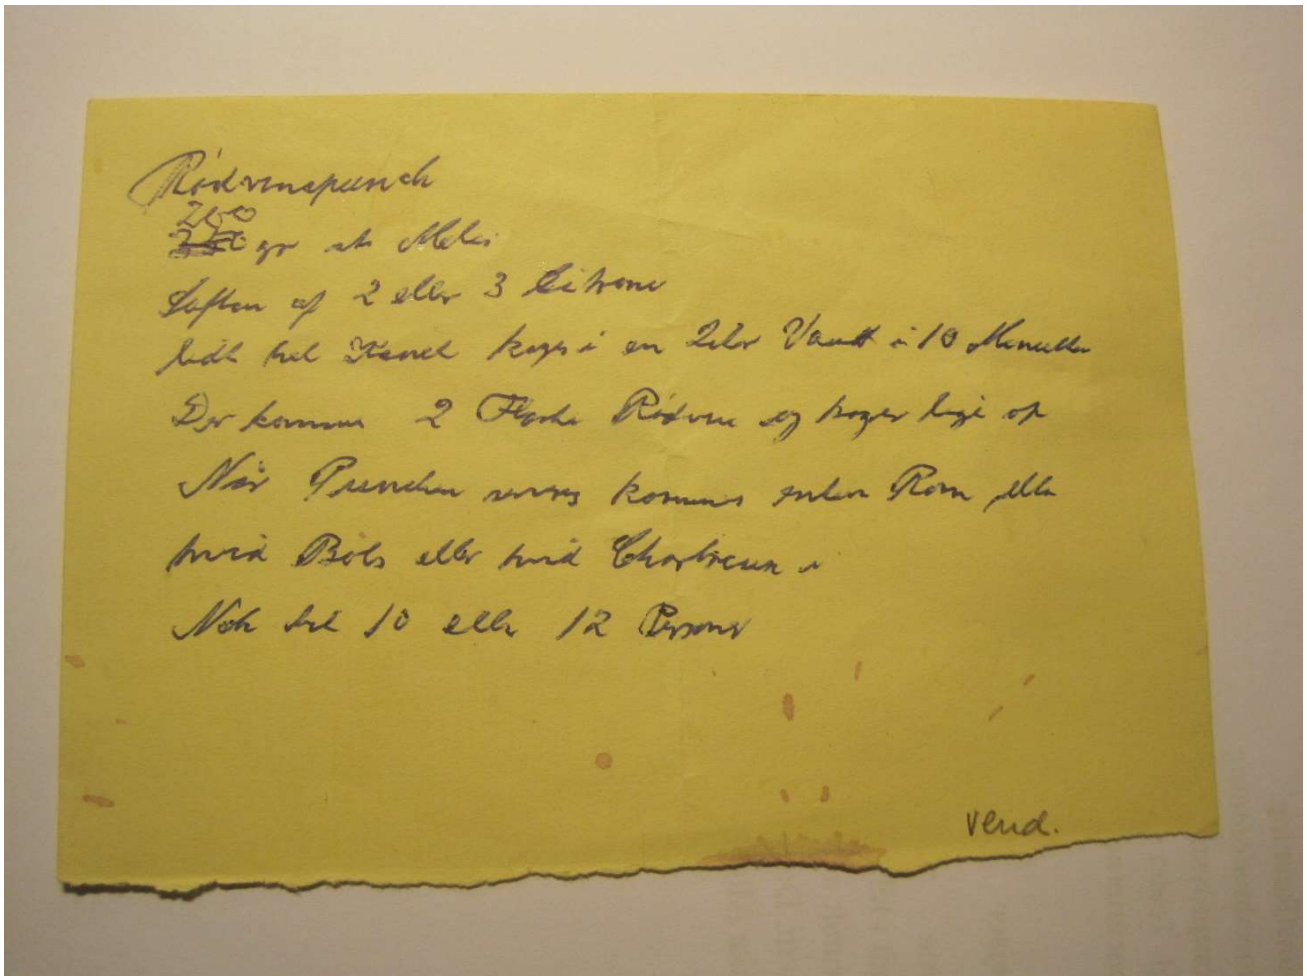 Rødvinspunch
200
gr st Melis
Saften af 2 eller 3 Citroner
lidt hel Kanel koges i en 2 eller Vand i 10 Minutter
Der kommes 2 Flaske Rødvin og koger lige op
Når Punchen serveres kommes enten Rom eller
hvid Bols eller hvid Chartreuse i
Nok til 10 eller 12 Personer
vend.